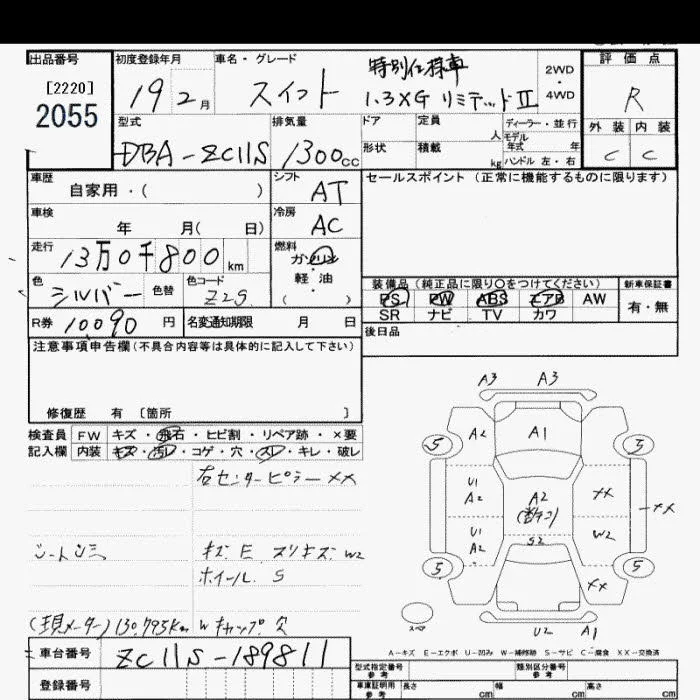 出品番号 初度登録年月 車名・グレード 評価点
[2220]
2055
19 2月 スイフト 特別仕様車
1.3XG リミテッドII
2WD・4WD
R
型式 排気量 ドア 定員 人 ディーラー・並行 外装 内装
DBA-ZC11S 1300cc
形状 積載 kg モデル年式 年 ハンドル 左・右
C C
車歴 自家用・( ) シフト AT セールスポイント (正常に機能するものに限ります)
車検 年 月( 日) 冷房 AC
走行 13万0千800km 燃料 ガソリン 軽油 ( )
色 シルバー 色替 色コード Z2S
装備品 (純正品に限り○をつけてください) 新車保証書
PS PW ABS エアB AW 有・無
SR ナビ TV カワ
R券 10090円 名変通知期限 月 日
後日品
注意事項申告欄(不具合内容等は具体的に記入して下さい)
修復歴 有 [箇所 ]
検査員記入欄 FW キズ・飛石・ヒビ割・リペア跡・×要
内装 キズ・汚レ・コゲ・穴・スレ・キレ・破レ
右センターピラーXX
シートシミ
キズ E スリキズ W2
ホイール S
(現メーター)130.795km Wキャップ欠
A3 A3
5 A2 A1 5
U1 A2 A2 XX XX
U1 A2 S2 W2
5 XX 5
スペア U2 A1
A-キズ E-エクボ U-凹み W-補修跡 S-サビ C-腐食 XX-交換済
車台番号 ZC11S-189811
登録番号
型式指定番号 参考 類別区分番号 参考
車庫証明用 参考 長さ cm 幅 cm 高さ cm